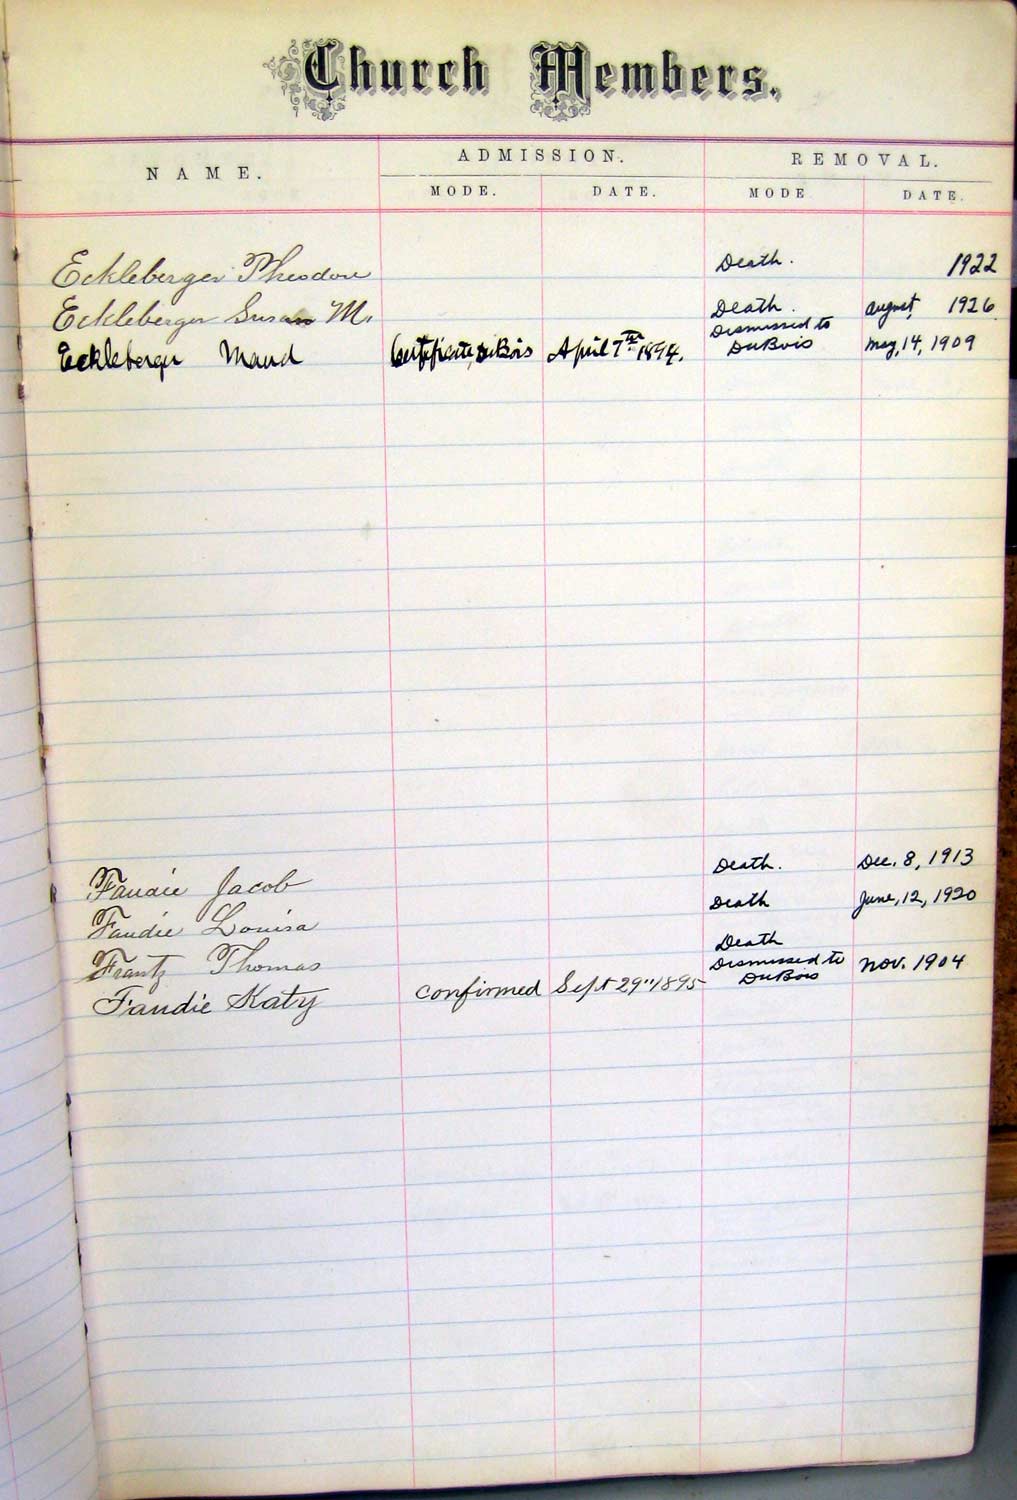 Church Members.
NAME. ADMISSION. REMOVAL.
MODE. DATE. MODE DATE.
Eckleberger Theodore Death. 1922
Eckleberger Susan M. Death. august, 1926
Dismissed to
Eckleberger Maud Certificate, DuBois April 7th 1894. DuBois may, 14, 1909
Faudie Jacob Death. Dec. 8, 1913
Faudie Louisa Death June, 12, 1920
Frantz Thomas Death
Dismissed to nov. 1904
Faudie Katy confirmed Sept 29" 1895 DuBois